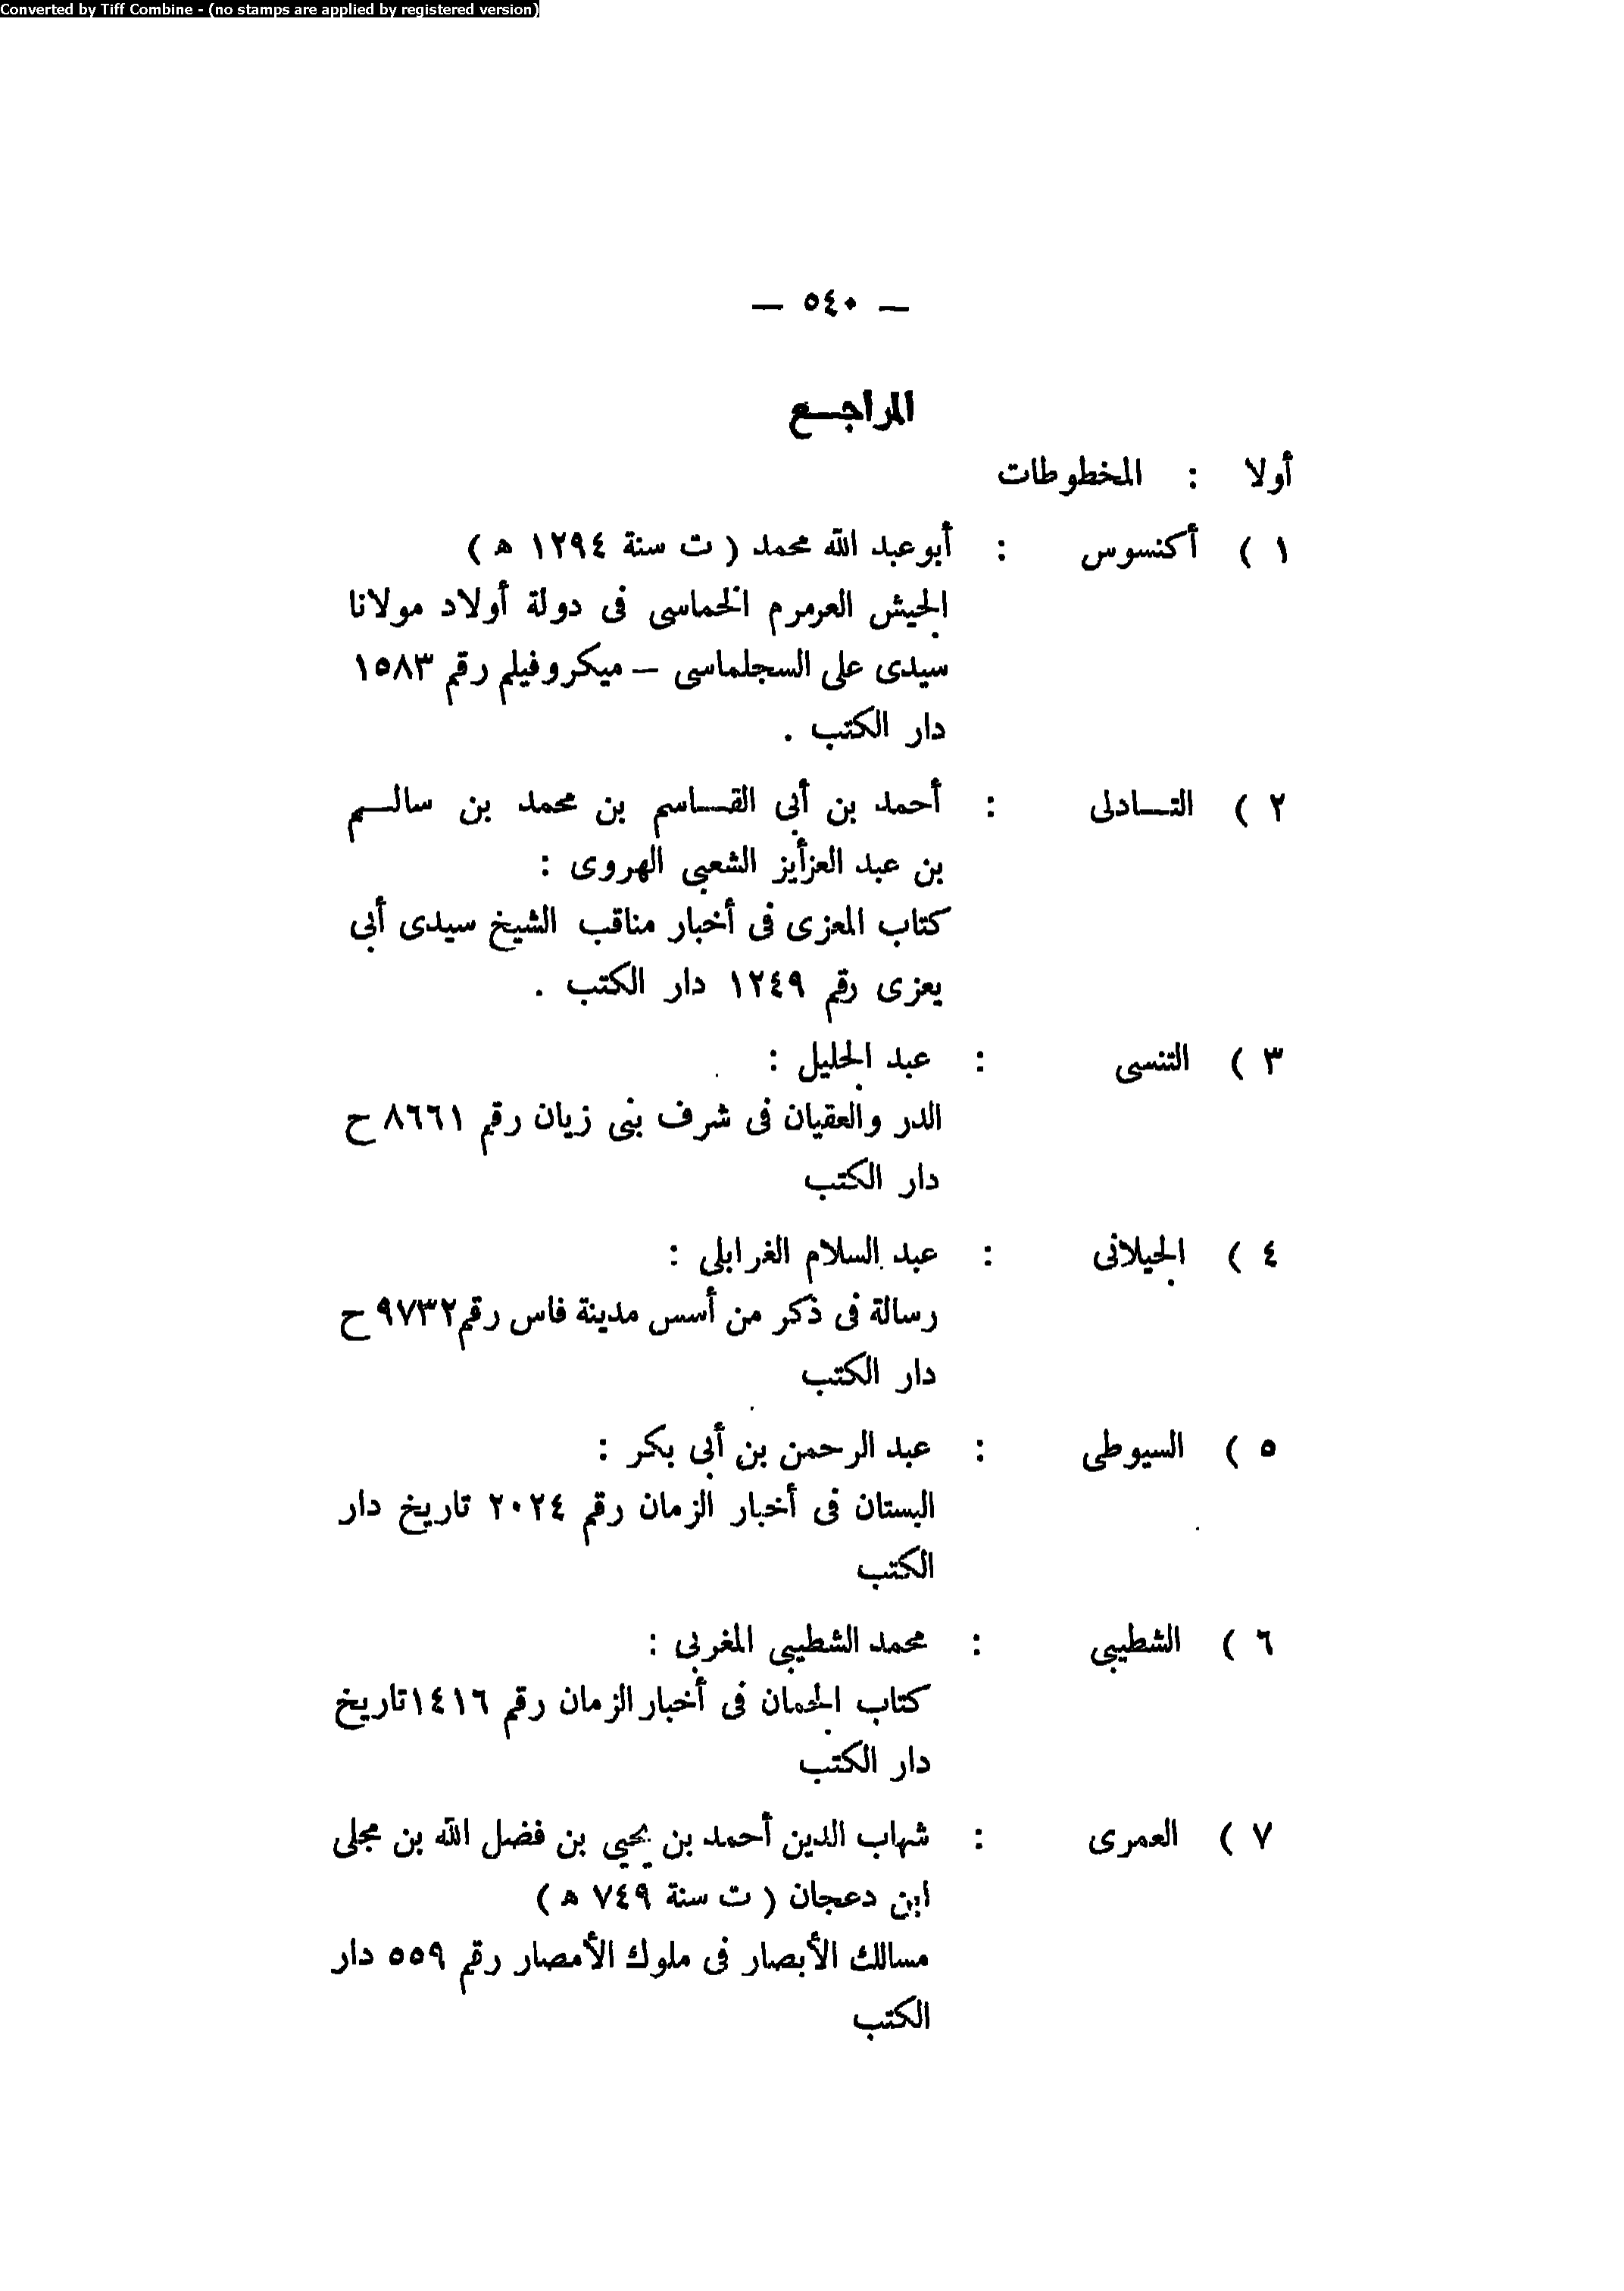 Converted by Tiff Combine - (no stamps are applied by registered version)
— ٥٤٠ —
المراجـــع
أولا : المخطوطات
١ ) أكنسوس : أبو عبد الله محمد ( ت سنة ١٢٩٤ ه )
الجيش العرمرم الخماسى فى دولة أولاد مولانا
سيدى على السجلماسى – ميكروفيلم رقم ١٥٨٣
دار الكتب .
٢ ) التـــادلى : أحمد بن أبى القـــاسم بن محمد بن سالـــم
بن عبد العزأيز الشعبى الهروى :
كتاب المعزى فى أخبار مناقب الشيخ سيدى أبى
يعزى رقم ١٢٤٩ دار الكتب .
٣ ) التنسى : عبد الجليل :
الدر والعقيان فى شرف بنى زيان رقم ٨٦٦١ ح
دار الكتب
٤ ) الجيلانى : عبد السلام الغرابلى :
رسالة فى ذكر من أسس مدينة فاس رقم ٩٧٣٢ ح
دار الكتب
٥ ) السيوطى : عبد الرحمن بن أبى بكر :
البستان فى أخبار الزمان رقم ٢٠٢٤ تاريخ دار
الكتب
٦ ) الشطيبى : محمد الشطيبى المغربى :
كتاب الجمان فى أخبار الزمان رقم ١٤١٦ تاريخ
دار الكتب
٧ ) العمرى : شهاب الدين أحمد بن يحيى بن فضل الله بن مجلى
ابن دعجان ( ت سنة ٧٤٩ ه )
مسالك الأبصار فى ملوك الأمصار رقم ٥٥٩ دار
الكتب